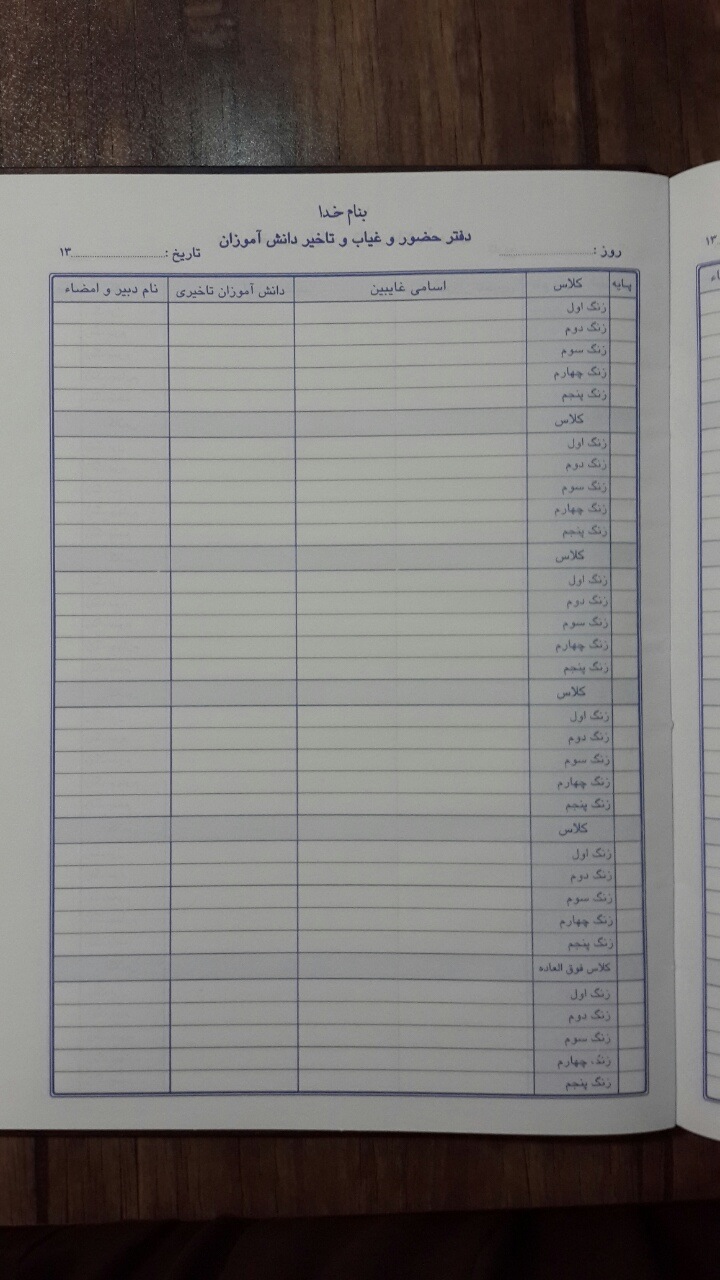 بنام خدا
دفتر حضور و غیاب و تاخیر دانش آموزان
روز :.......................... تاریخ :..........................۱۳
پایه کلاس اسامی غایبین دانش آموزان تاخیری نام دبیر و امضاء
زنگ اول
زنگ دوم
زنگ سوم
زنگ چهارم
زنگ پنجم
کلاس
زنگ اول
زنگ دوم
زنگ سوم
زنگ چهارم
زنگ پنجم
کلاس
زنگ اول
زنگ دوم
زنگ سوم
زنگ چهارم
زنگ پنجم
کلاس
زنگ اول
زنگ دوم
زنگ سوم
زنگ چهارم
زنگ پنجم
کلاس
زنگ اول
زنگ دوم
زنگ سوم
زنگ چهارم
زنگ پنجم
کلاس فوق العاده
زنگ اول
زنگ دوم
زنگ سوم
زنگ چهارم
زنگ پنجم
۱۳